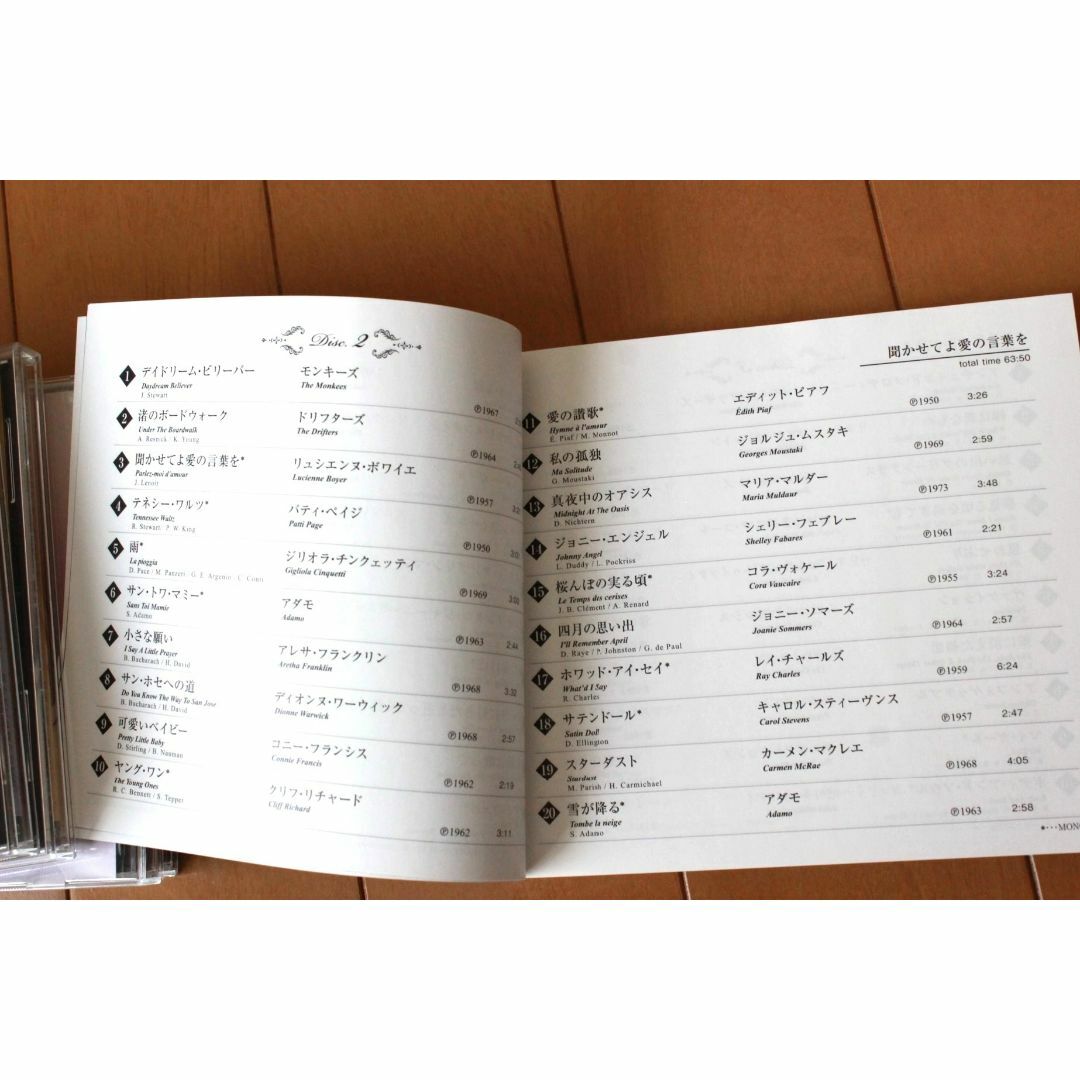 Disc. 2
1 デイドリーム・ビリーバー モンキーズ
Daydream Believer The Monkees
J. Stewart ℗1967
2 渚のボードウォーク ドリフターズ
Under The Boardwalk The Drifters
A. Resnick / K. Young ℗1964
3 聞かせてよ愛の言葉を* リュシエンヌ・ボワイエ
Parlez-moi d'amour Lucienne Boyer
J. Lenoir ℗1957
4 テネシー・ワルツ* パティ・ペイジ
Tennessee Waltz Patti Page
R. Stewart / P. W. King ℗1950
5 雨* ジリオラ・チンクェッティ
La pioggia Gigliola Cinquetti
D. Pace / M. Panzeri / G. E. Argenio / C. Conti ℗1969 3:00
6 サン・トワ・マミー* アダモ
Sans Toi Mamie Adamo
S. Adamo ℗1963 2:44
7 小さな願い アレサ・フランクリン
I Say A Little Prayer Aretha Franklin
B. Bacharach / H. David ℗1968 3:32
8 サン・ホセへの道 ディオンヌ・ワーウィック
Do You Know The Way To San Jose Dionne Warwick
B. Bacharach / H. David ℗1968 2:57
9 可愛いベイビー コニー・フランシス
Pretty Little Baby Connie Francis
D. Stirling / B. Nauman ℗1962 2:19
10 ヤング・ワン* クリフ・リチャード
The Young Ones Cliff Richard
R. C. Bennett / S. Tepper ℗1962 3:11
聞かせてよ愛の言葉を
total time 63:50
11 愛の讃歌* エディット・ピアフ ℗1950 3:26
Hymne à l'amour Édith Piaf
E. Piaf / M. Monnot
12 私の孤独 ジョルジュ・ムスタキ ℗1969 2:59
Ma Solitude Georges Moustaki
G. Moustaki
13 真夜中のオアシス マリア・マルダー ℗1973 3:48
Midnight At The Oasis Maria Muldaur
D. Nichtern
14 ジョニー・エンジェル シェリー・フェブレー ℗1961 2:21
Johnny Angel Shelley Fabares
L. Duddy / L. Pockriss
15 桜んぼの実る頃* コラ・ヴォケール ℗1955 3:24
Le Temps des cerises Cora Vaucaire
J. B. Clément / A. Renard
16 四月の思い出 ジョニー・ソマーズ ℗1964 2:57
I'll Remember April Joanie Sommers
D. Raye / P. Johnston / G. de Paul
17 ホワッド・アイ・セイ* レイ・チャールズ ℗1959 6:24
What'd I Say Ray Charles
R. Charles
18 サテンドール* キャロル・スティーヴンス ℗1957 2:47
Satin Doll Carol Stevens
D. Ellington
19 スターダスト カーメン・マクレエ ℗1968 4:05
Stardust Carmen McRae
M. Parish / H. Carmichael
20 雪が降る* アダモ ℗1963 2:58
Tombe la neige Adamo
S. Adamo
*・・・MONO